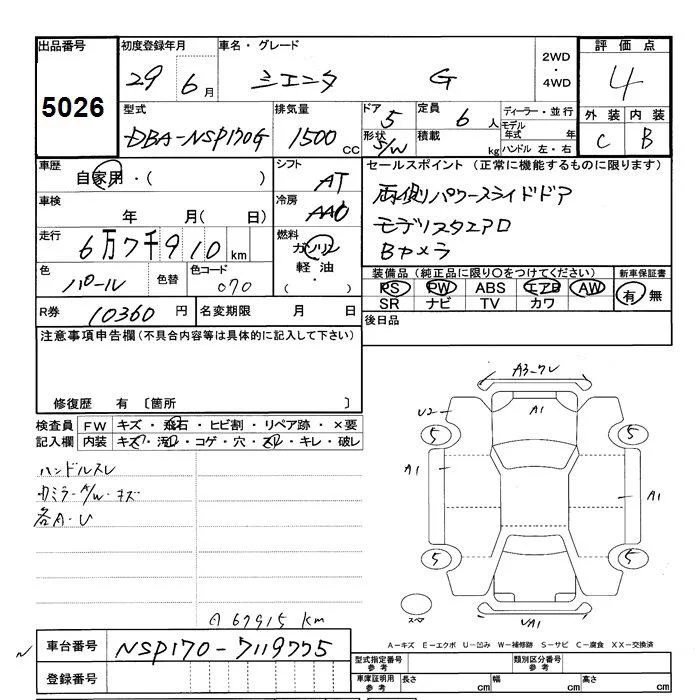 出品番号
5026
初度登録年月
29 6月
車名・グレード
シエンタ G
2WD
・
4WD
評価点
4
外装 内装
C B
型式
DBA-NSP170G
排気量
1500 cc
ドア 5
形状 S/W
定員 6人
積載 kg
ディーラー・並行
モデル年式 年
ハンドル 左・右
車歴
自家用・( )
シフト
AT
車検
年 月( 日)
冷房
AAC
走行
6万7千910 km
燃料
ガソリン
軽油
・( )
色
パール
色替
色コード
070
R券 10360 円
名変期限 月 日
セールスポイント(正常に機能するものに限ります)
両側パワースライドドア
モデリスタエアロ
Bカメラ
装備品(純正品に限り○をつけてください)
PS PW ABS エアB AW
SR ナビ TV カワ
新車保証書
有・無
後日品
注意事項申告欄(不具合内容等は具体的に記入して下さい)
修復歴 有 〔箇所 〕
検査員記入欄
FW キズ・飛石・ヒビ割・リペア跡・×要
内装 キズ・汚れ・コゲ・穴・スレ・キレ・破レ
ハンドルスレ
カミラー・A/W・キズ
各A・U
A 67915 km
A3-ワレ
A1
U2
5
5
A1
A1
5
5
UA1
スペア
A-キズ E-エクボ U-凹み W-補修跡 S-サビ C-腐食 XX-交換済
車台番号 NSP170-7119775
登録番号
型式指定番号参考
類別区分番号参考
車庫証明用参考
長さ cm
幅 cm
高さ cm